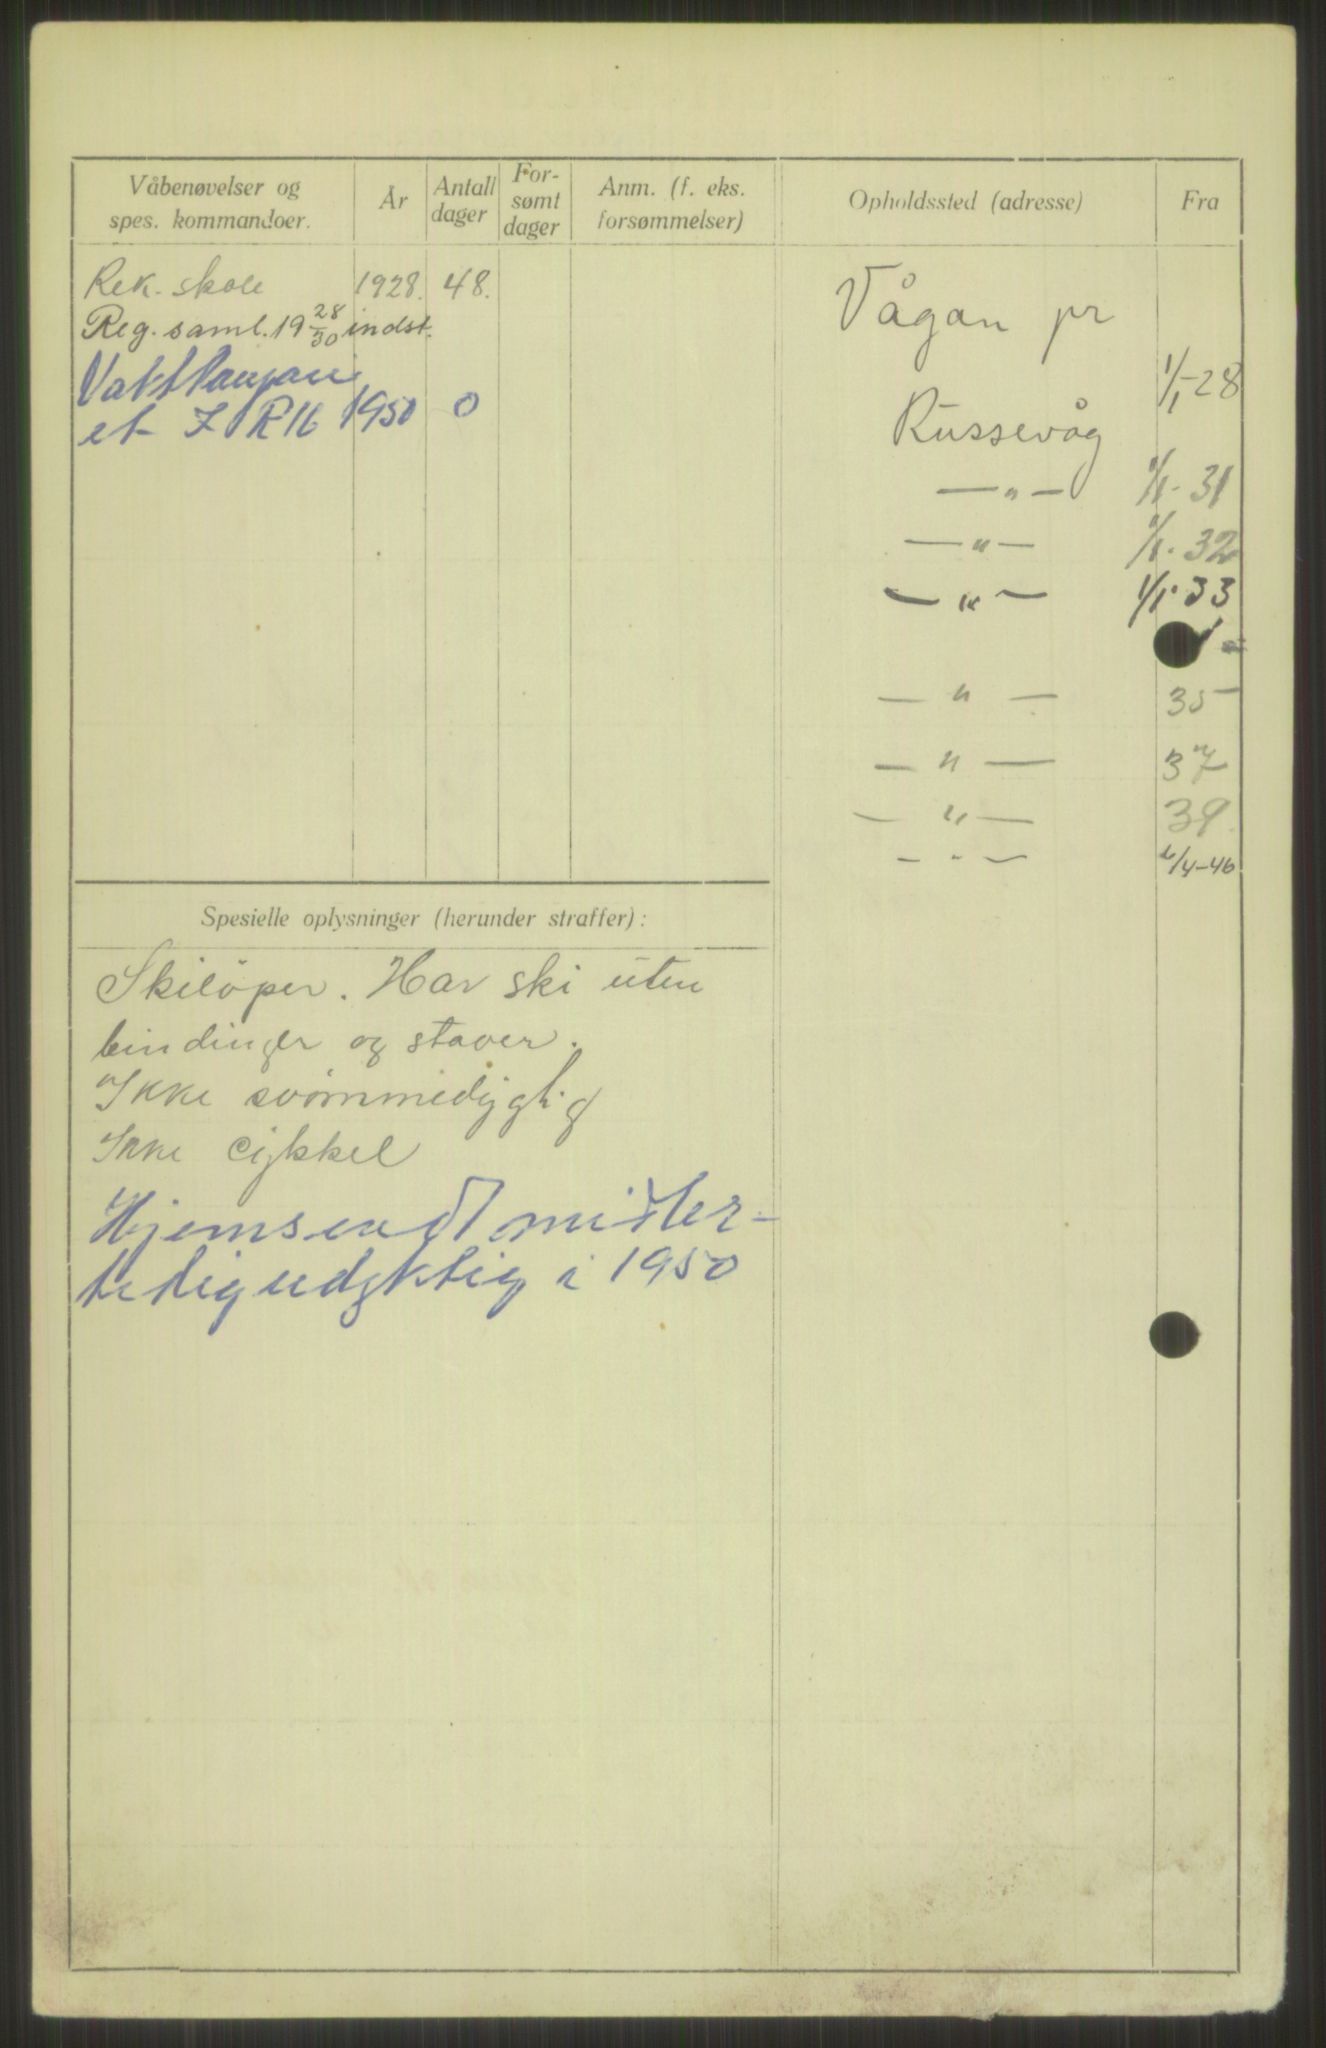 Våbenøvelser og
spes. kommandoer.
År
Antall
dager
For-
sømt
dager
Anm. (f. eks.
forsømmelser)
Opholdssted (adresse)
Fra
Rek. skole 1928. 48.
Reg. saml. 19 28/30 indst.
Vaktkompani
et I R 16 1950 0
Vågan pr
1/1-28
Russevåg
— " — 1/1-31
— " — 1/1-32
— " — 1/1-33
— " — 35
— " — 37
— " — 39
— " — 6/4-46
Spesielle oplysninger (herunder straffer):
Skilöper. Har ski uten
bindinger og staver.
Ikke svömmedygtig
Ikke cykkel
Hjemsendt midler-
tidig udyktig i 1950